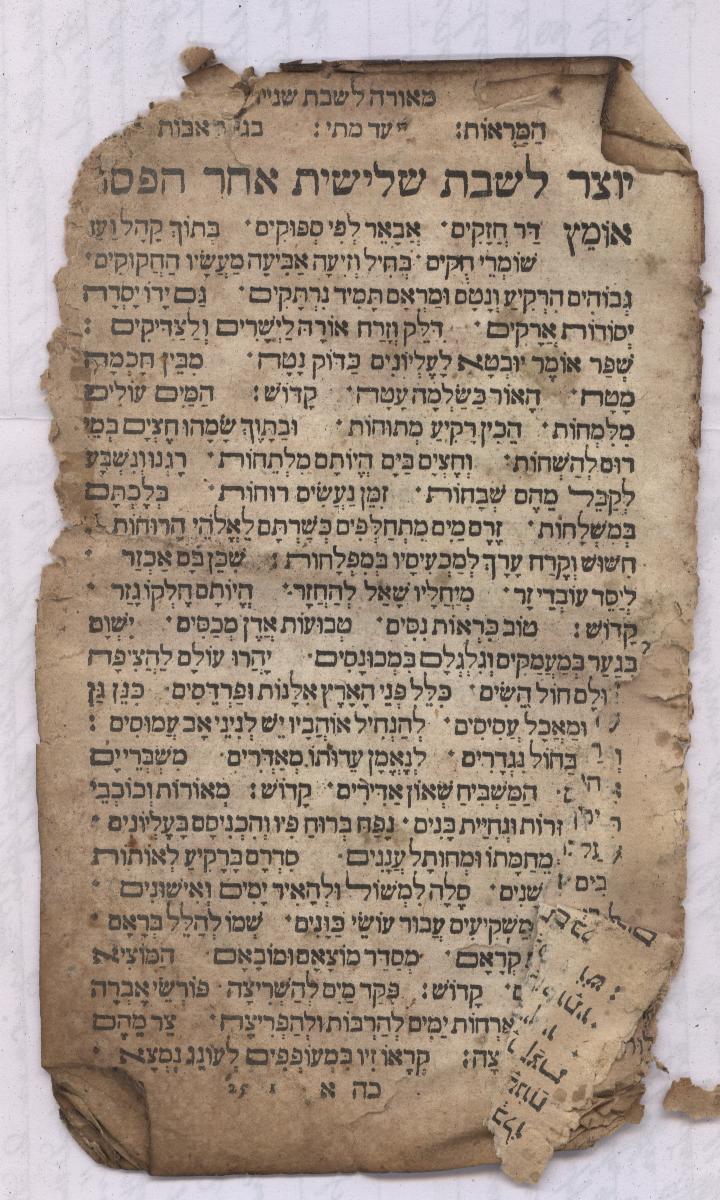 מאורה לשבת שנייה
המראות: עד מתי: בני אבות
יוצר לשבת שלישית אחר הפסח
אומץ דר חזקים ׳ אבאר לפי ספוקים ׳ בתוך קהל ועד
שומרי חקים ׳ בחיל וזיעה אביעה מעשיו החקוקים ׳
גבוהים הרקיע ונטם ומראם תמיד נרתקים ׳ גם ידו יסדה
יסודות ארקים ׳ דלק וזרח אורה לישרים ולצדיקים :
שפר אומר יובטא לעליונים בדוק נטה ׳ מבין חכמה
מטה ׳ האור כשלמה עטה ׳ קדוש: המים עולים
מלמחות ׳ הכין רקיע מתוחות ׳ ובתוך שמהו חצים במי
רום להשחות ׳ וחצים בים היותם מלתחות ׳ רגנו ונשבע
לקבל מהם שבחות ׳ זמן נעשים רוחות ׳ בלכתם
במשלחות ׳ זרם מים מתחלפים בשרתם לאלהי הרוחות ׳
חשוש וקרח ערך למכעיסיו במפלחות : שכן בם אכזר ׳
ליסר עובדי זר ׳ מיחליו שאל להחזר ׳ היותם חלקו גזר ׳
קדוש: טוב בראות נסים ׳ טבועות אדן מכסים ׳ ישום
בגער במעמקים וגלגלם במכונסים ׳ יהרו עולם להציפה
ולם חול השים ׳ כלל פני הארץ אלנות ופרדסים ׳ כגן גן
ומאכל עסיסים ׳ להנחיל אוהביו יש לניני אב עמוסים :
בחול נגדרים ׳ לנאמן עדותו מאדרים ׳ משבריים
המשביח שאון אדירים ׳ קדוש: מאורות וכוכבי
זרות ונחיית בנים ׳ נפח ברוח פיו והכניסם בעליונים ׳
מחמתו ומחותל עננים ׳ סדרם ברקיע לאותות
שנים ׳ סלה למשול ולהאיר ימים ואישונים ׳
משקיעים עבור עושי כונים ׳ שמו להלל בראם ׳
קראם ׳ מסדר מוצאם ומובאם ׳ המוציא
קדוש: פקד מים להשריצה ׳ פורשי אברה
ארחות ימים להרבות ולהפריצה ׳ צר מהם
צה: קראו זיו במעופפים לעונג נמצא ׳
כה א